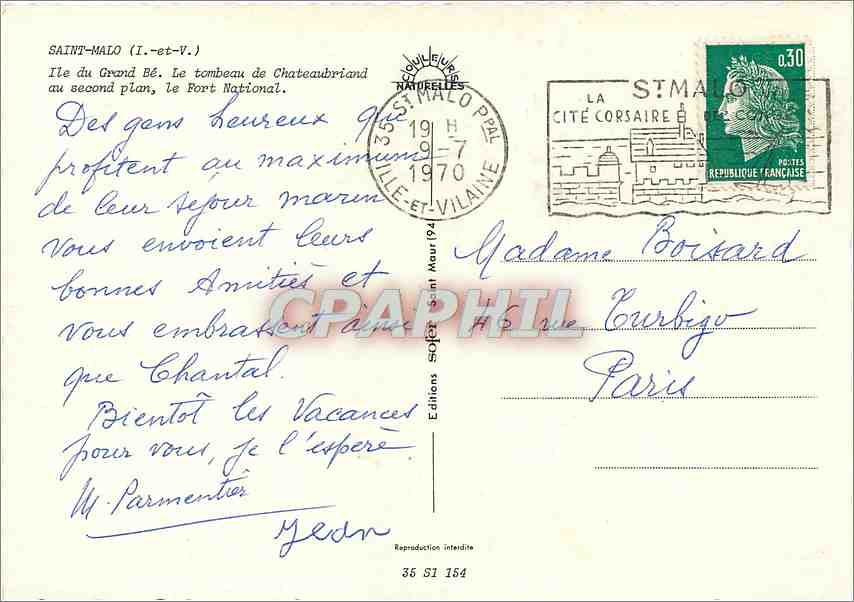 SAINT-MALO (I.-et-V.)
Ile du Grand Bé. Le tombeau de Chateaubriand
au second plan, le Fort National.
COULEURS
NATURELLES
35 ST MALO PPAL
19 H
9-7
1970
ILLE-ET-VILAINE
ST MALO
LA
CITÉ CORSAIRE
0,30
POSTES
REPUBLIQUE FRANÇAISE
Des gens heureux que
profitent au maximum
de leur séjour marin
vous envoient leurs
bonnes Amitiés et
vous embrassent ainsi
que Chantal.
Bientôt les Vacances
pour vous, je l'espère.
M. Parmentier
Jean
Editions SOFER Saint Maur (94
Madame Boisard
46 rue Turbigo
Paris
CPAPHIL
Reproduction interdite
35 S1 154